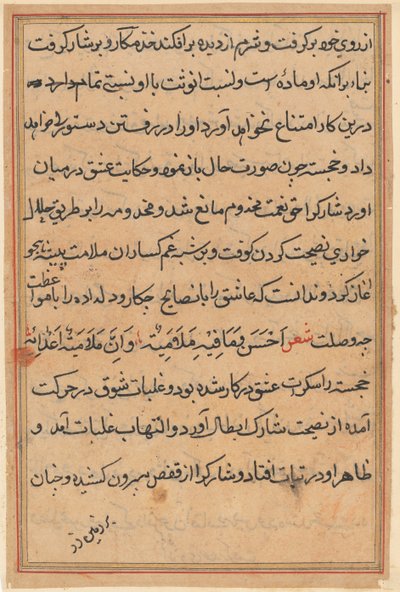 از روی خود برگرفت و شرم از دیده برافکند خنده مکار و بر شارک رفت
بناء برانکه او مادهٔ است و نسبت انوثت با او نسبتی تمام دارد
درین کار امتناع نخواهد آورد او را در رفتن دستوری خواهد
داد و خجسته چون صورت حال باز نمود و حکایت عشق در میان
اورد شارک را حق نعمت مخدوم مانع شد و مخدومه را بر طریق حلال
خواری نصیحت کردن گرفت و بر شه غم کساران ملامت
آغاز کرد و ندانست که عاشق را با نصایح چکار و دلداده را با مواعظت
چه وصلت شعر احسن وقفا فیه ملامیته وان ملامیته اعدائه
خجسته را سکرت عشق در کار شده بود و غلبات شوق در حرکت
آمده از نصیحت شارک ابطال آورد و التهاب غلبات آمد و
ظاهر او در تبات افتاد و شارک را از قفص بیرون کشیده و چنان
بر زمین زد